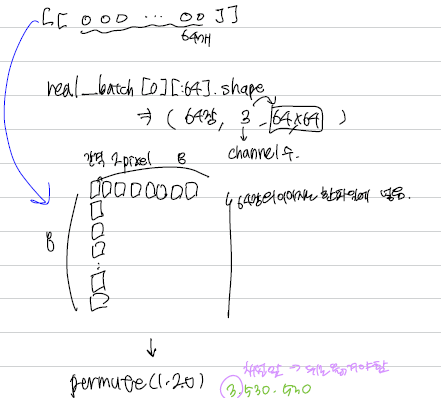 [[ 0 0 0 ... 0 0 ]]
64개
real_batch [0][:64].shape
⇒ (64장, 3, 64×64)
channel 수.
간격 2pixel 8
8
64장의 이미지를 한 파일에 넣음.
↓
permute(1.2.0)
채널만 → 뒤로 옮겨야함
3, 530. 530